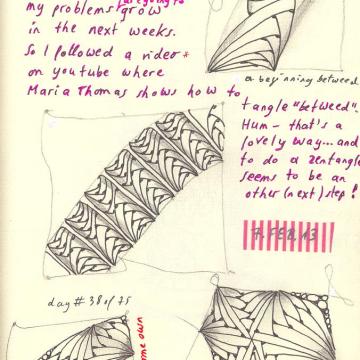 are going to
my problems grow
in the next weeks.
So I followed a video*
on youtube where
Maria Thomas shows how to
a beginning betweed
tangle "betweed".
Hum - that's a
lovely way... and
to do a zentangle
seems to be an
other (next) step!
7. FEB. 13
day # 38 of 75
me own